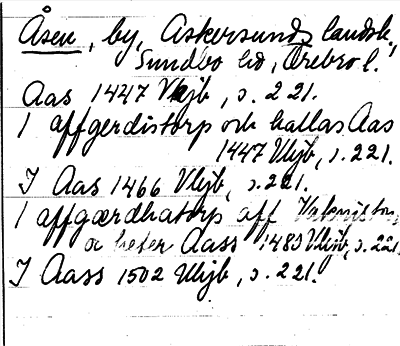 Åsen, by, Askersunds landsk.,
Sundbo hd, Örebro l.
Aas 1447 Vljb, s. 221.
I affgerdistorp och kallas Aas
1447 Vljb, s. 221.
I Aas 1466 Vljb, s. 221.
I affgærdhatorp aff
oc heter Aass 1480 Vljb, s. 221
I Aass 1502 Vljb, s. 221.